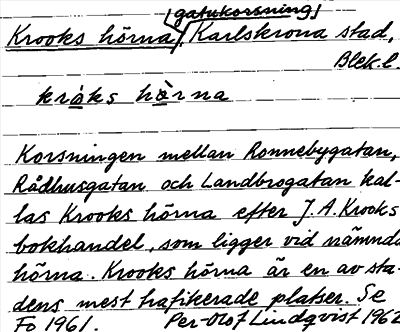 [gatukorsning]
Krooks hörna, Karlskrona stad,
Blek.l.
kråks hörna
Korsningen mellan Ronnebygatan,
Rådhusgatan och Landbrogatan kal-
las Krooks hörna efter J.A. Krooks
bokhandel, som ligger vid nämnda
hörna. Krooks hörna är en av sta-
dens mest trafikerade platser. Se
Fo 1961. Per-Olof Lindqvist 1962